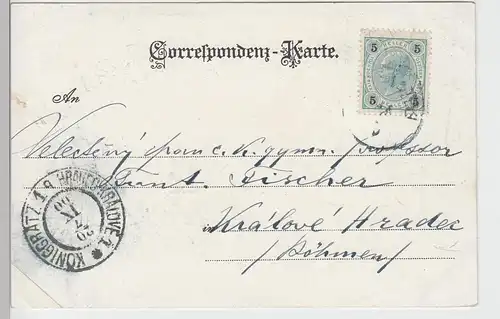 Correspondenz-Karte.
5 5
5 5
An
Velectěný pan c. k. gymn. professor
Ant. Fischer
Králové Hradec
(Böhmen)
KÖNIGGRÄTZ 1 HRADEC KRÁLOVÉ 1